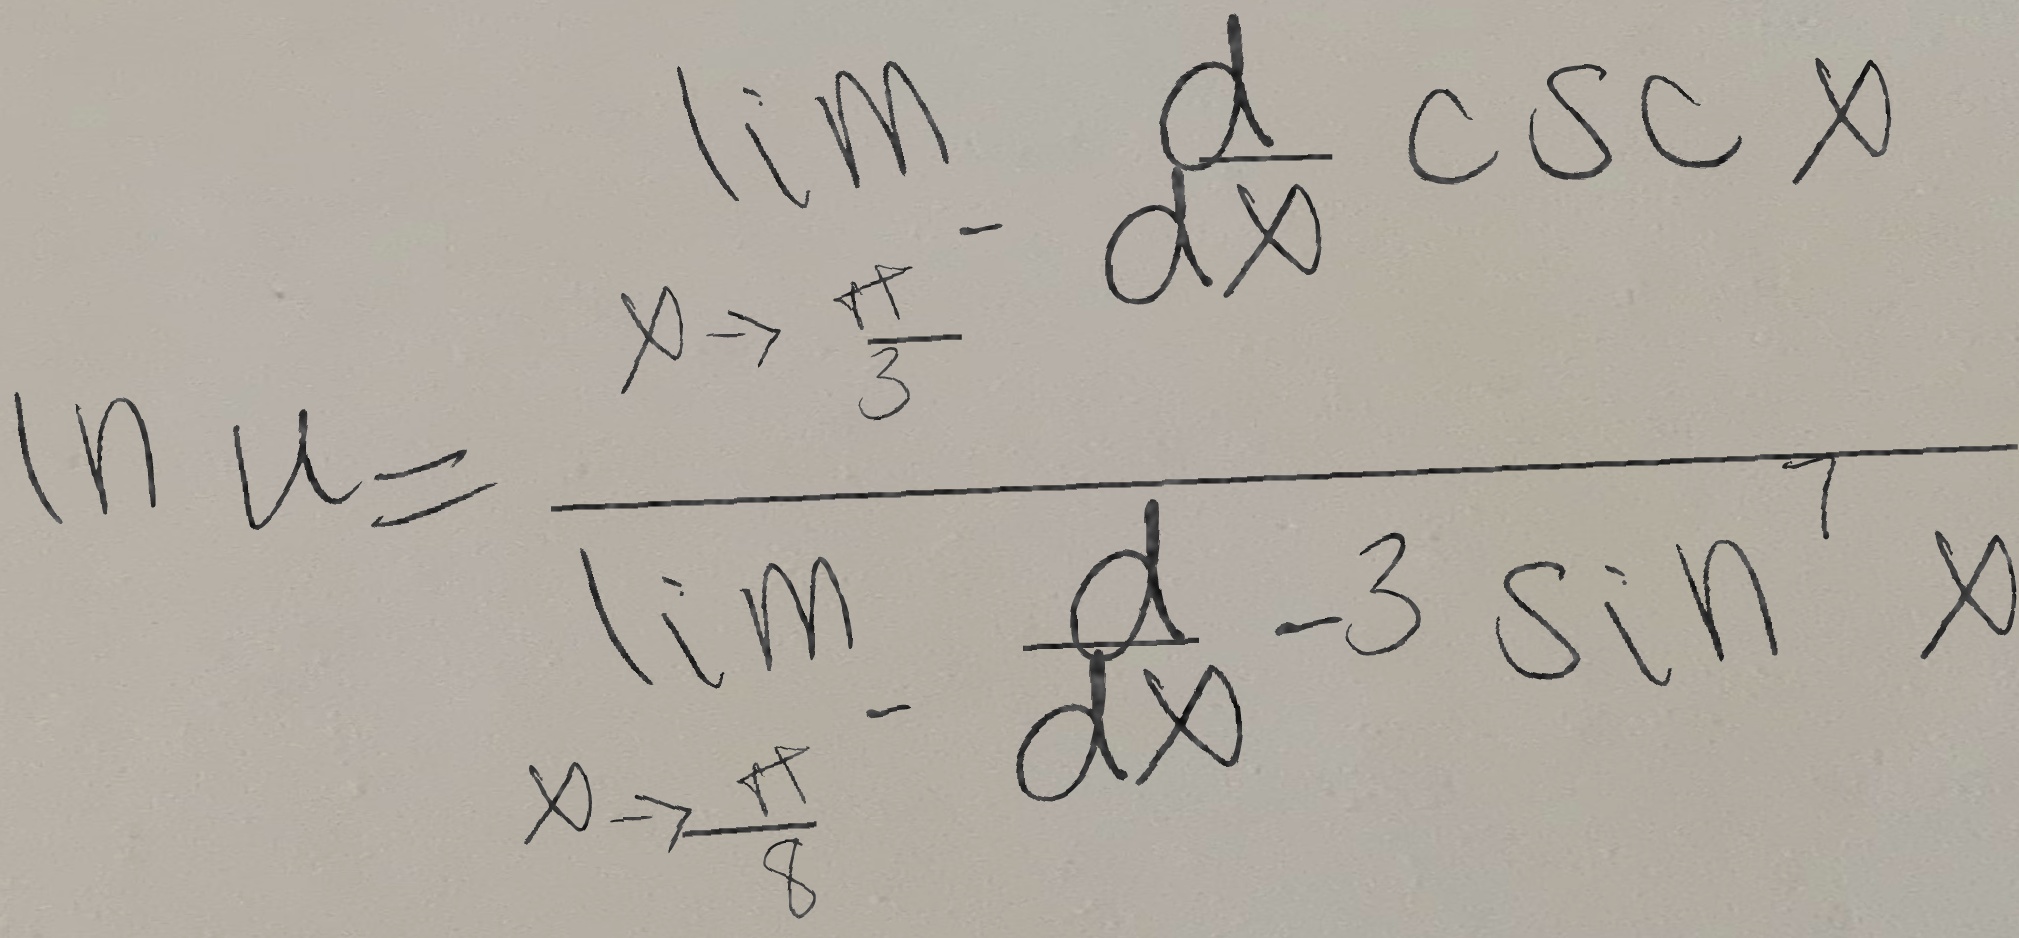 ln u = \frac{\lim_{x \to \frac{\pi}{3}^-} \frac{d}{dx} \csc x}{\lim_{x \to \frac{\pi}{8}^-} \frac{d}{dx} -3 \sin^7 x}